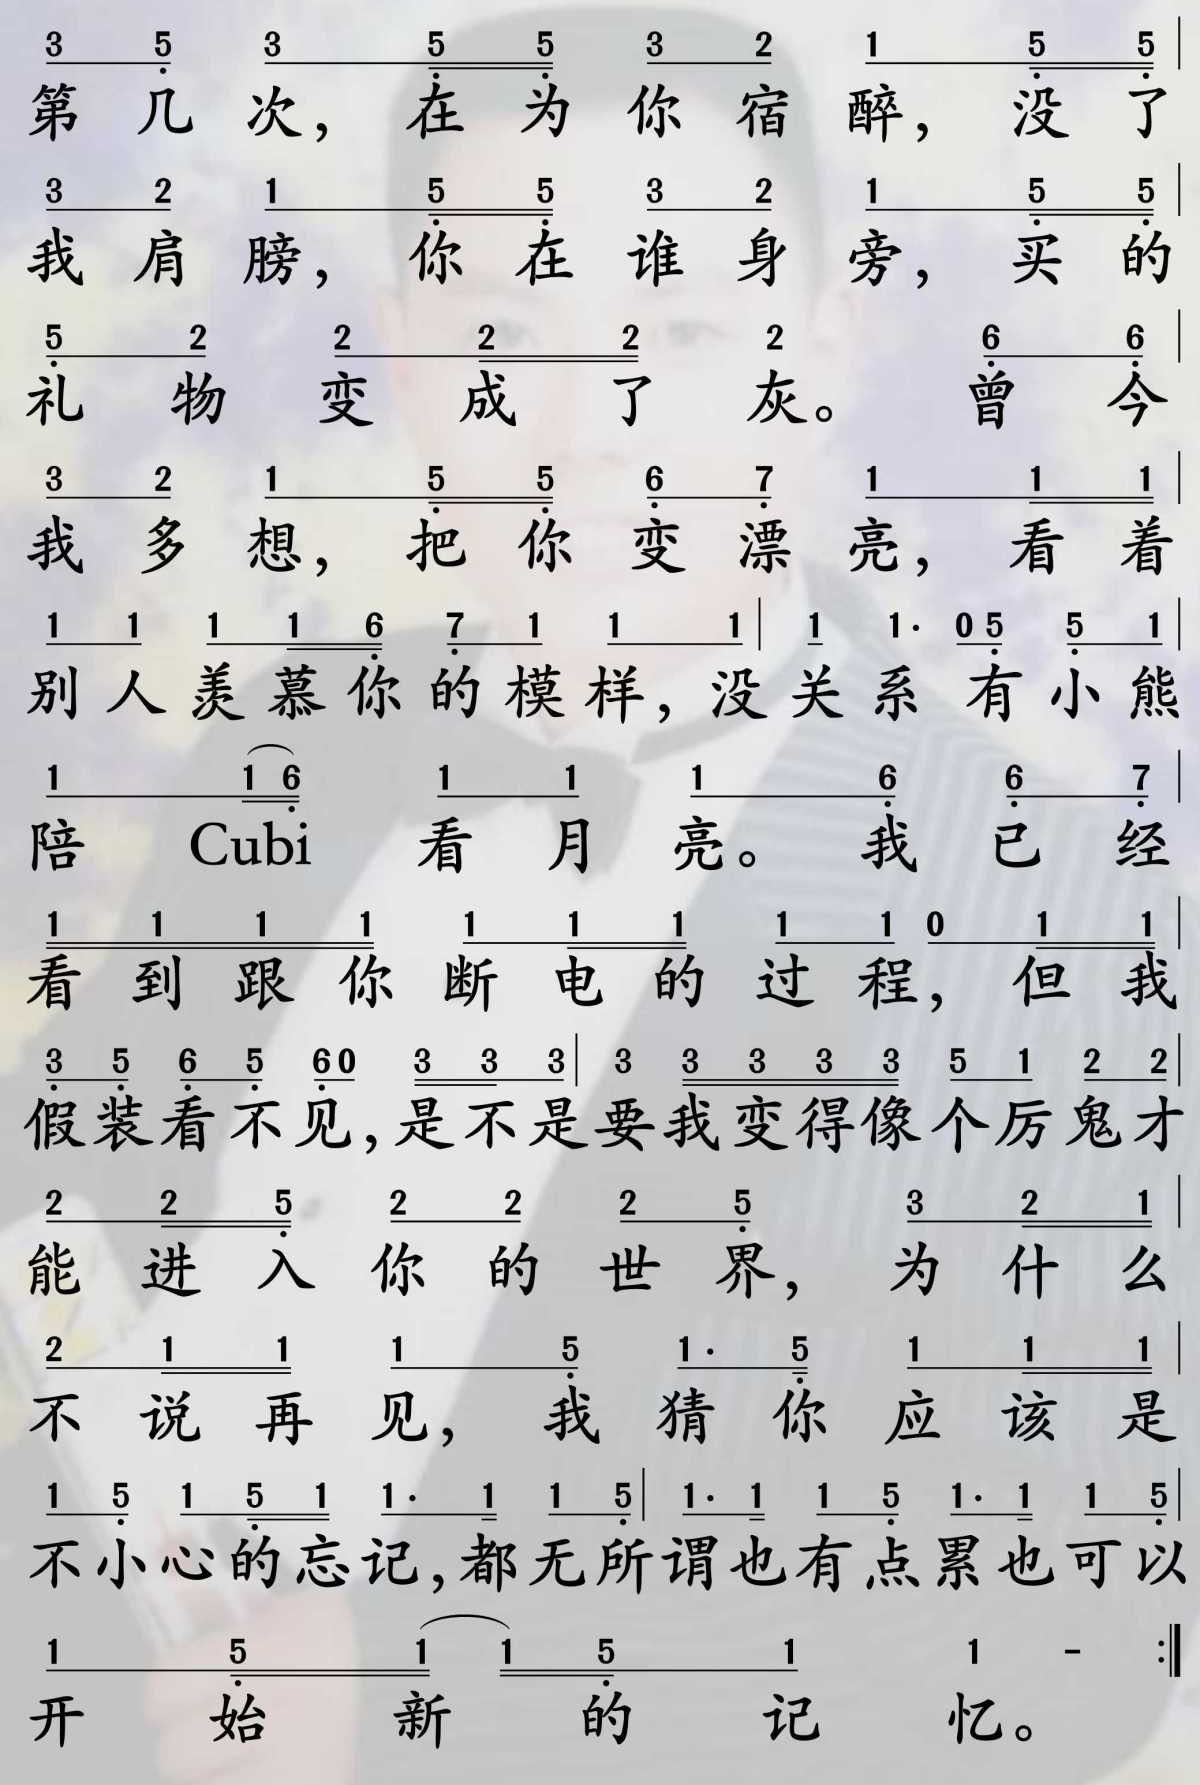 3 5 3 5 5 3 2 1 5 5
第几次，在为你宿醉，没了
3 2 1 5 5 3 2 1 5 5
我肩膀，你在谁身旁，买的
5 2 2 2 2 2 6 6
礼物变成了灰。曾今
3 2 1 5 5 6 7 1 1 1
我多想，把你变漂亮，看着
1 1 1 1 6 7 1 1 1 1 1· 0 5 5 1
别人羡慕你的模样，没关系有小熊
1 1 6 1 1 1 6 6 7
陪Cubi看月亮。我已经
1 1 1 1 1 1 1 1 1 0 1 1
看到跟你断电的过程，但我
3 5 6 5 6 0 3 3 3 3 3 3 3 3 5 1 2 2
假装看不见，是不是要我变得像个厉鬼才
2 2 5 2 2 2 5 3 2 1
能进入你的世界，为什么
2 1 1 1 5 1· 5 1 1 1
不说再见，我猜你应该是
1 5 1 5 1 1· 1 1 5 1· 1 1 5 1· 1 1 5
不小心的忘记，都无所谓也有点累也可以
1 5 1 1 5 1 1 -
开始新的记忆。